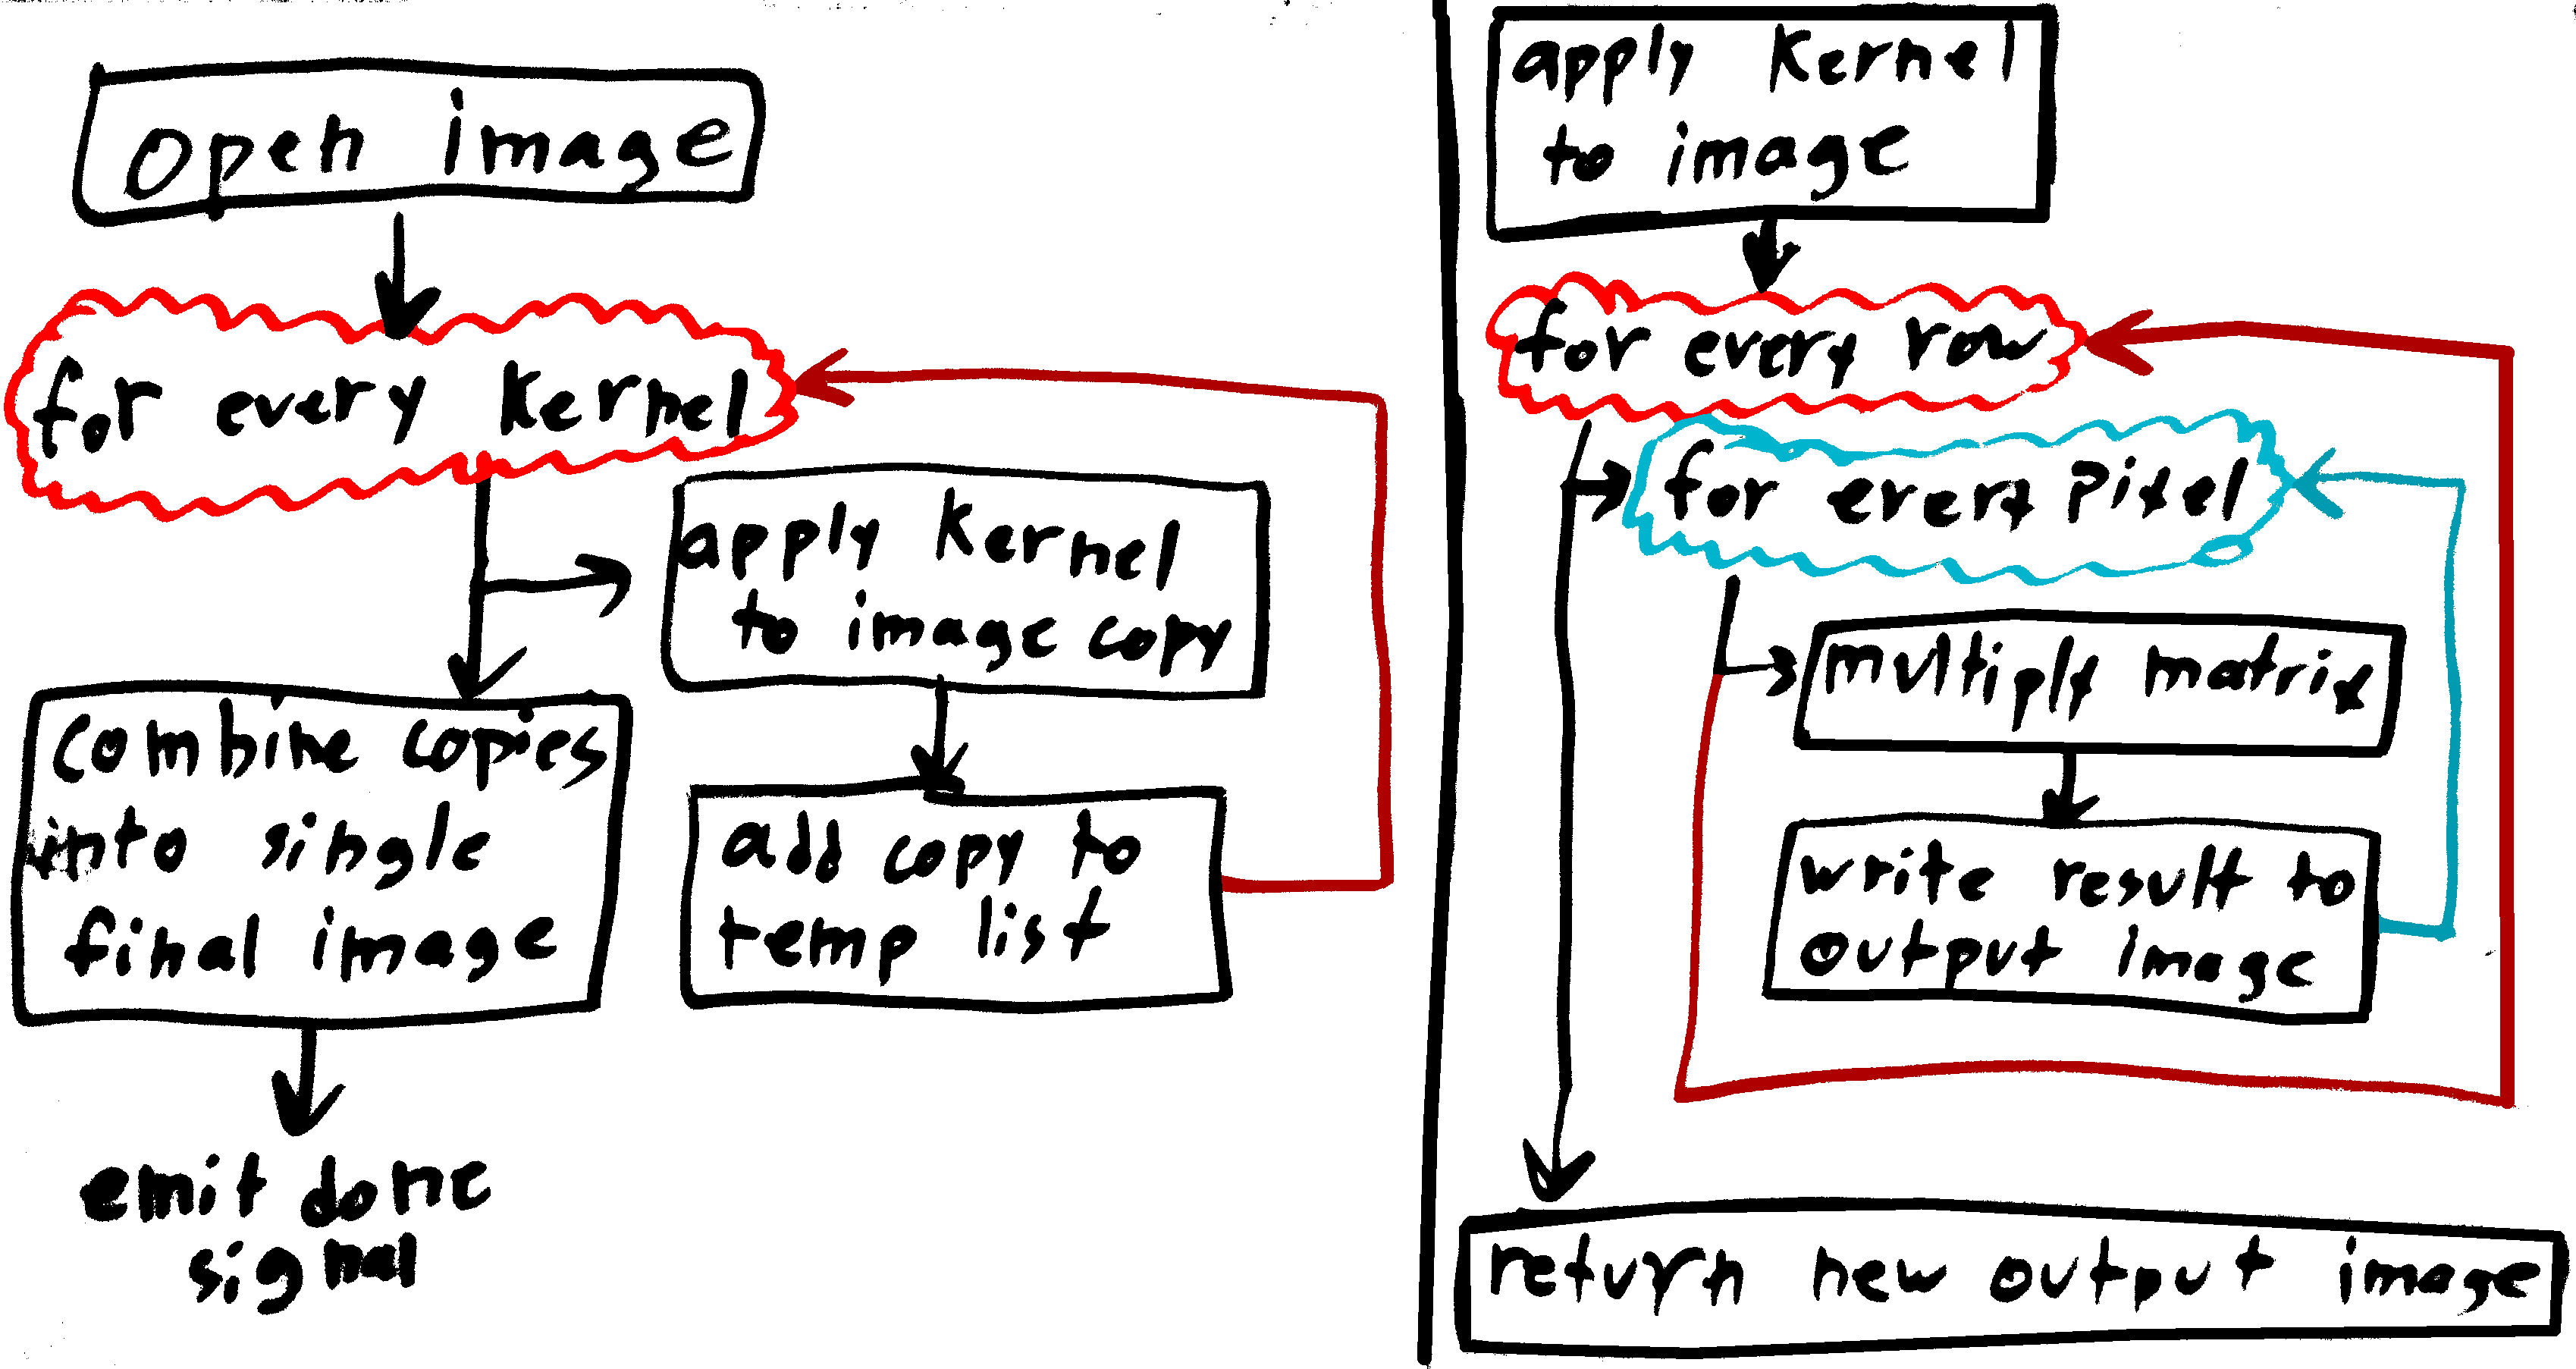 open image
for every kernel
apply kernel
to image copy
add copy to
temp list
combine copies
into single
final image
emit done
signal
apply kernel
to image
for every row
for every pixel
multiply matrix
write result to
output image
return new output image